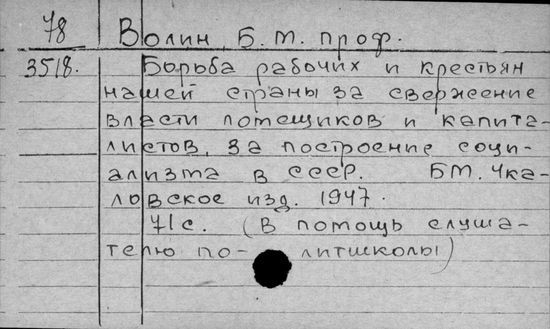 78 Волин, Б. М. проф.
3518. Борьба рабочих и крестьян
нашей страны за свержение
власти помещиков и капита-
листов, за построение соци-
ализма в СССР. БМ. Чка-
ловское изд. 1947.
71 с. (В помощь слуша-
телю по- литшколы)